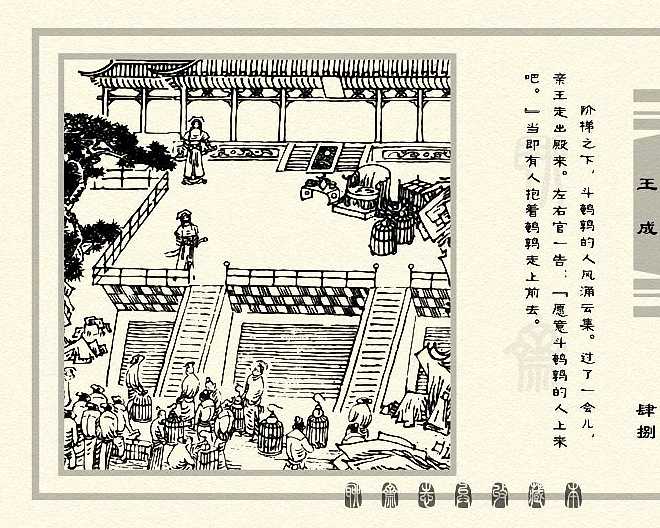 阶梯之下，斗鹌鹑的人风涌云集。过了一会儿，
亲王走出殿来。左右官一告：『愿意斗鹌鹑的人上来
吧。』当即有人抱着鹌鹑走上前去。
王成
肆捌